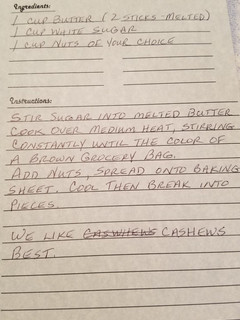 Ingredients:
1 CUP BUTTER (2 STICKS - MELTED)
1 CUP WHITE SUGAR
1 CUP NUTS OF YOUR CHOICE
Instructions:
STIR SUGAR INTO MELTED BUTTER
COOK OVER MEDIUM HEAT, STIRRING
CONSTANTLY UNTIL THE COLOR OF
A BROWN GROCERY BAG.
ADD NUTS, SPREAD ONTO BAKING
SHEET. COOL THEN BREAK INTO
PIECES.
WE LIKE CASWHEWS CASHEWS
BEST.